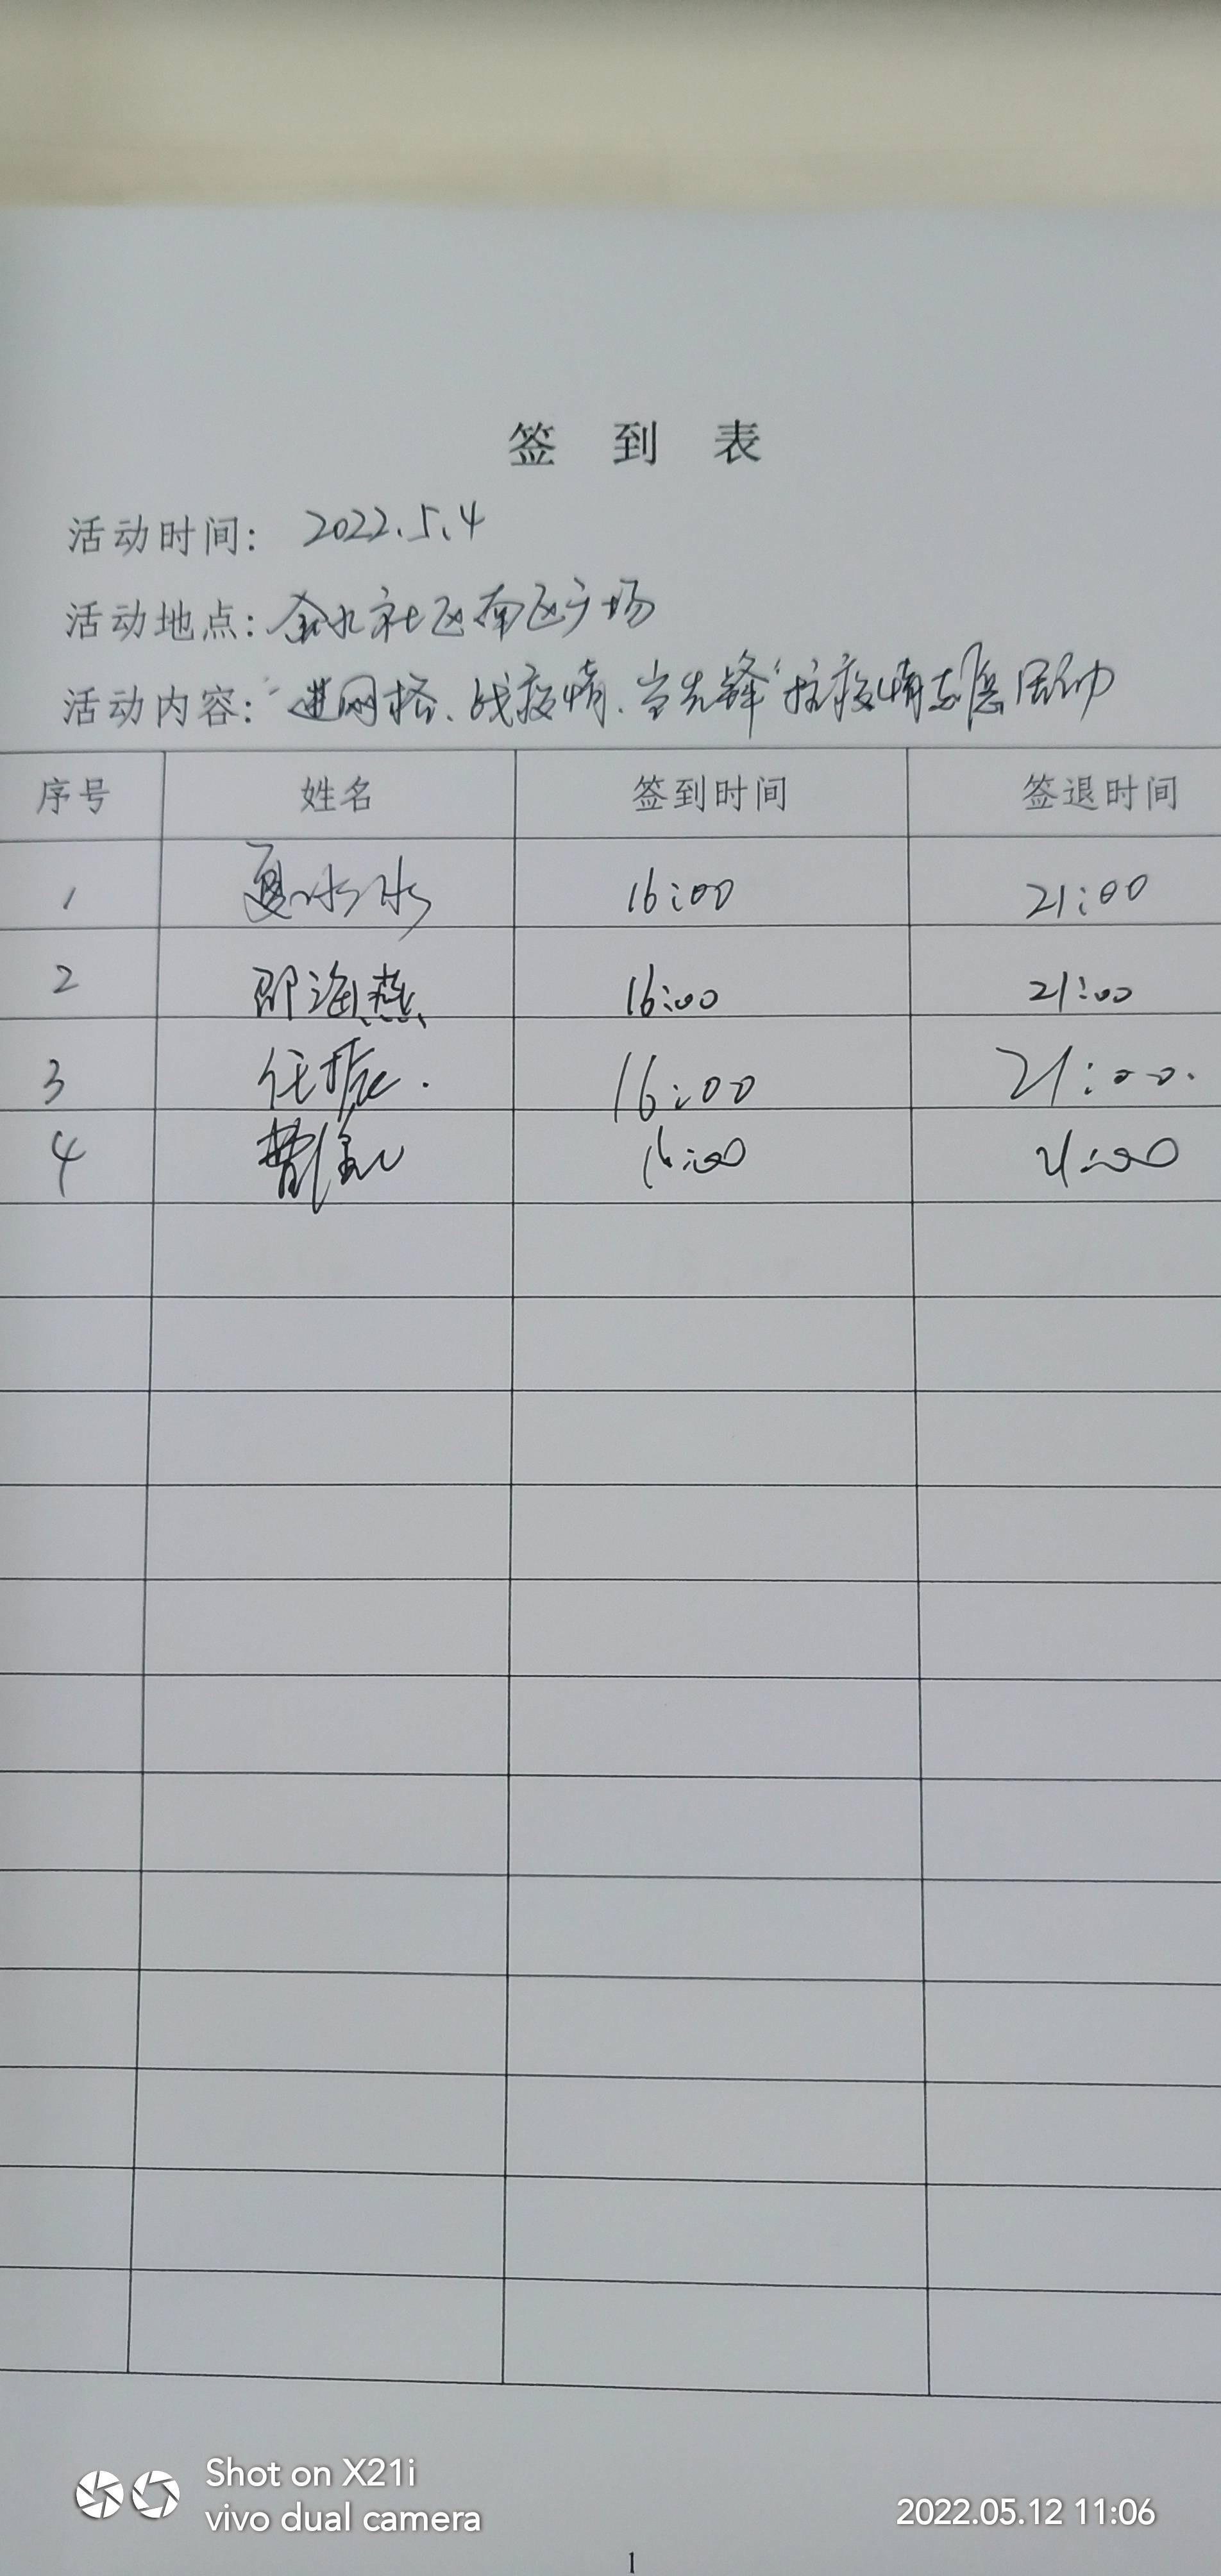 签 到 表
活动时间: 2022.5.4
活动地点: 金水社区南区广场
活动内容: “进网格、战疫情、当先锋”抗疫情志愿活动
序号 姓名 签到时间 签退时间
1 夏冰冰 16:00 21:00
2 邵海燕 16:00 21:00
3 任振 16:00 21:00.
4 16:00 21:00
Shot on X21i
vivo dual camera
2022.05.12 11:06
1